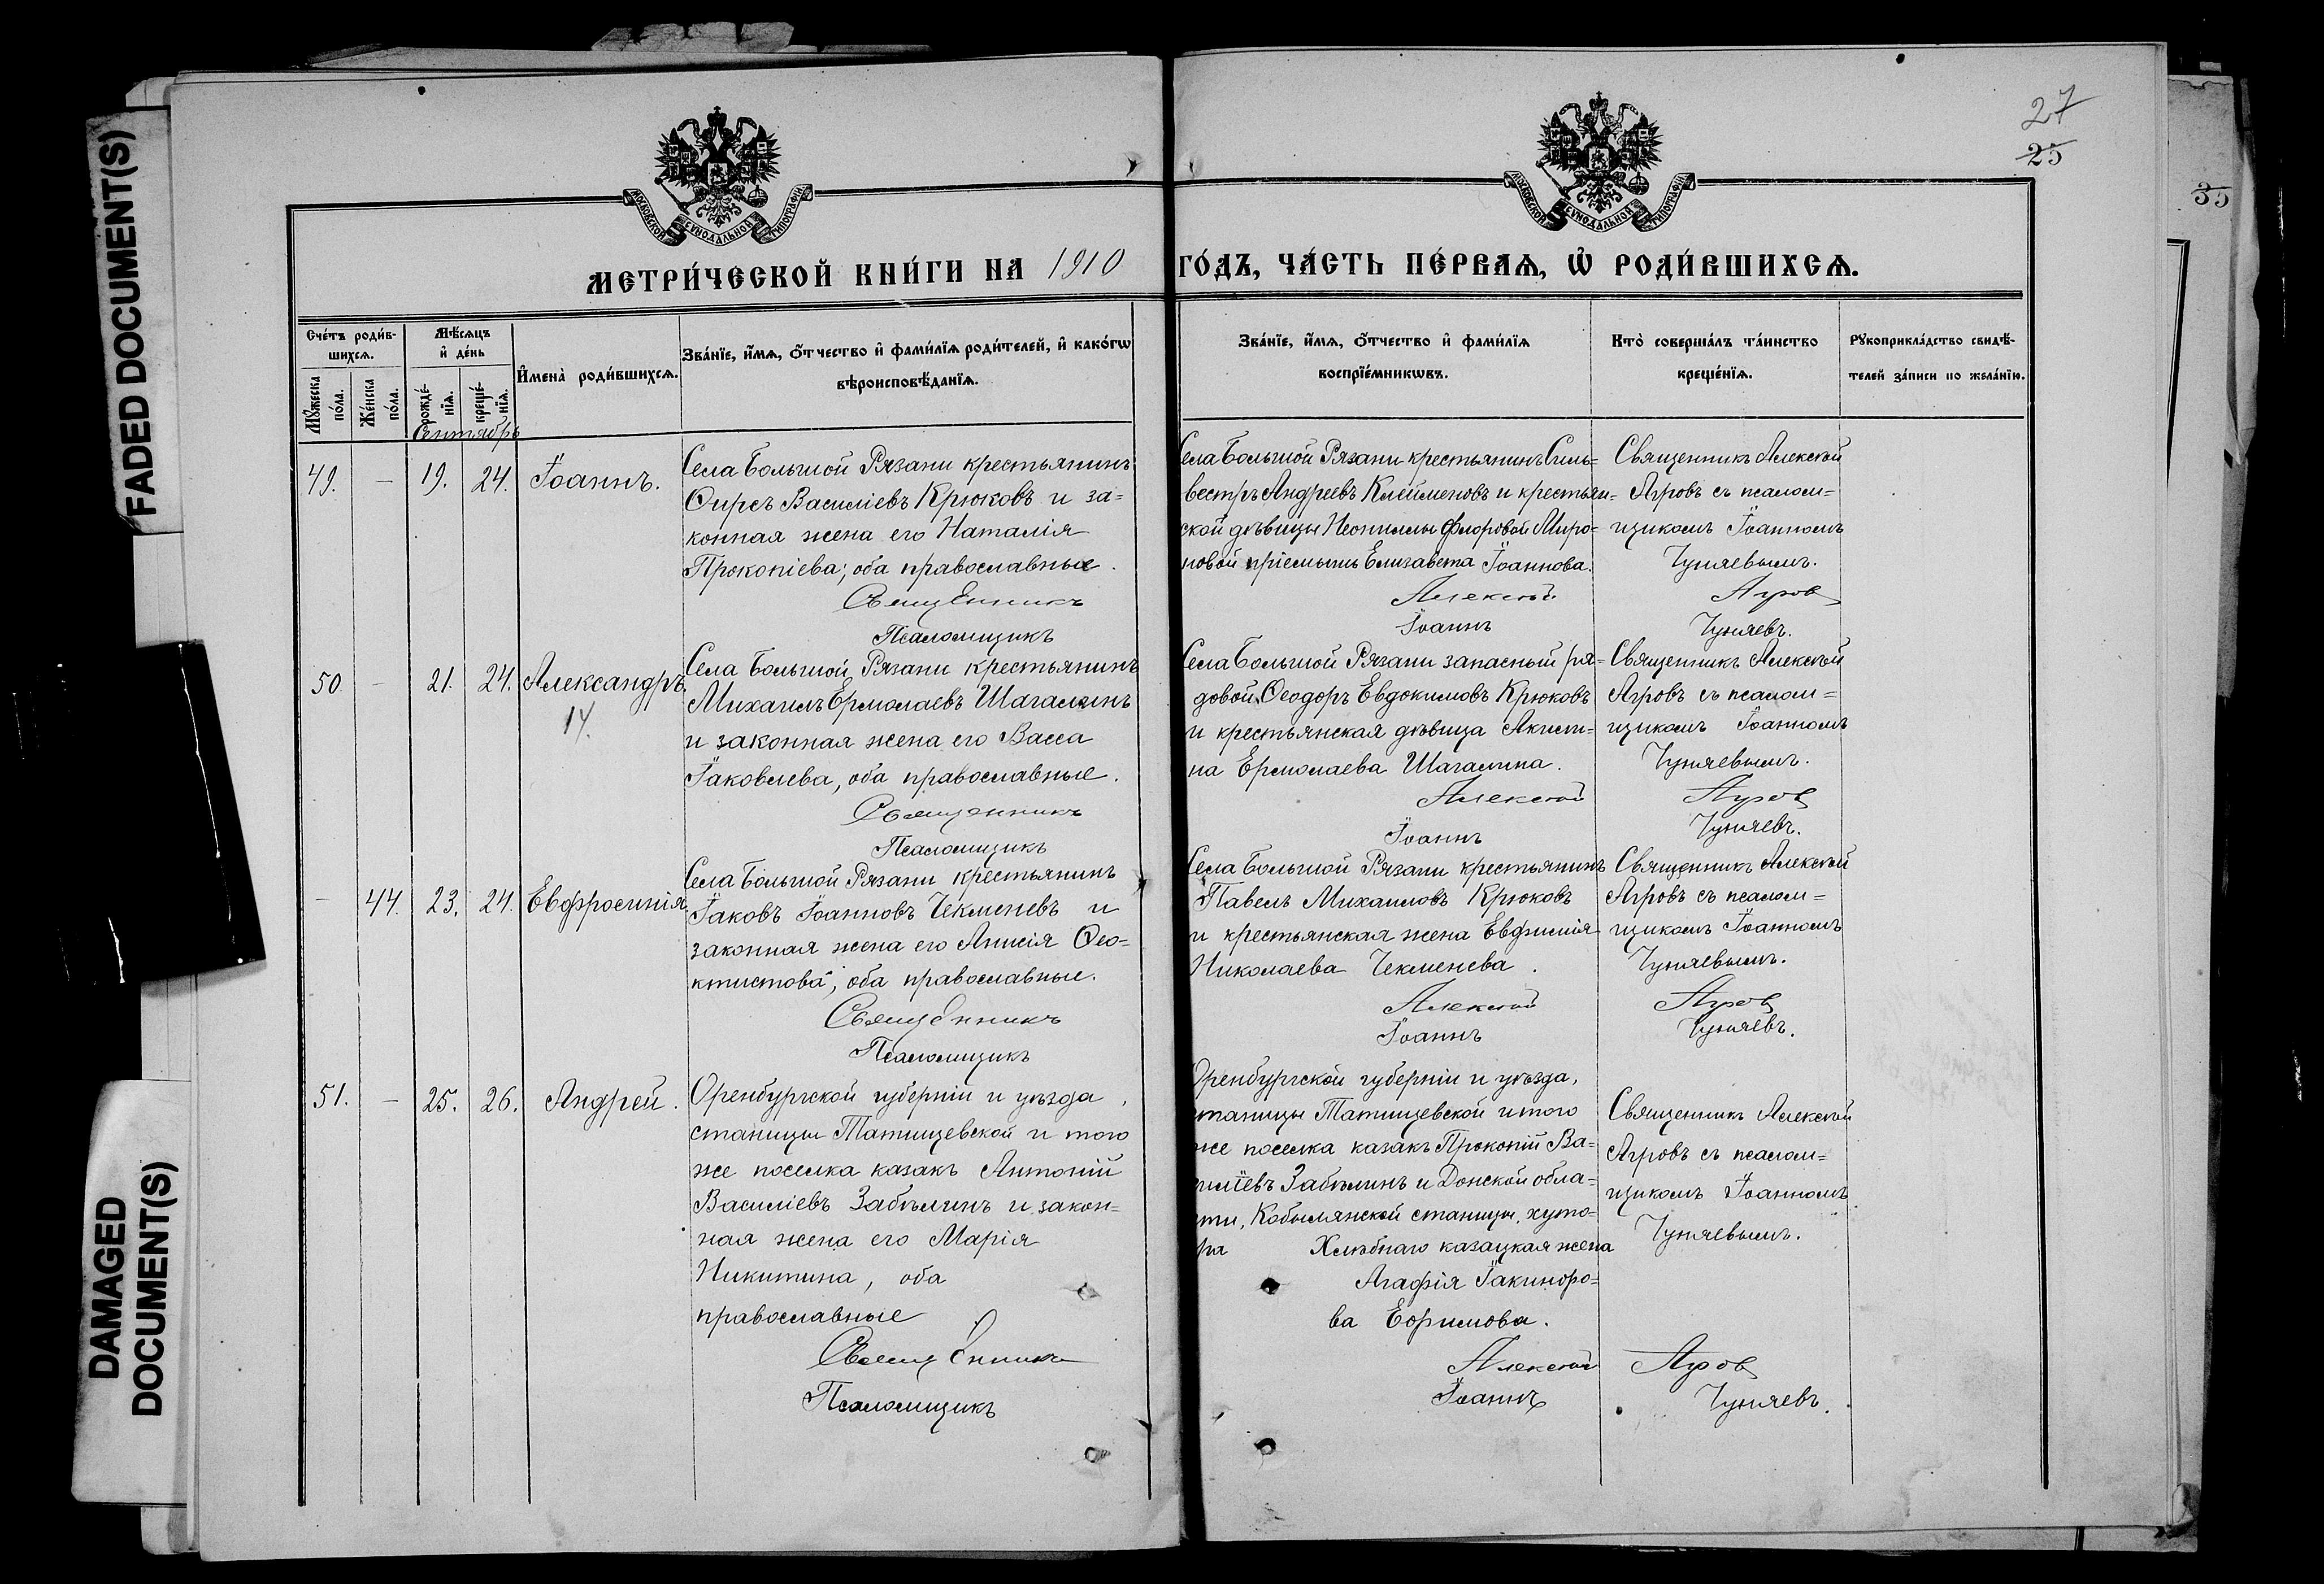 FADED DOCUMENT(S)
DAMAGED
DOCUMENT(S)
27
25
35
МОСКОВСКОЙ СѴНОДАЛЬНОЙ ТИПОГРАФІИ
МОСКОВСКОЙ СѴНОДАЛЬНОЙ ТИПОГРАФІИ
МЕТРИ́ЧЕСКОЙ КНИ́ГИ НА 1910 ГО́ДЪ, ЧА́СТЬ ПЕ́РВАѦ, Ѡ҆ РОДИ́ВШИХСѦ.
Сче́тъ роди́в-
шихсѧ.
Мꙋ́жеска
по́ла.
Же́нска
по́ла.
Мѣ́сѧцъ
и҆ де́нь
рожде́-
нїѧ.
креще́-
нїѧ.
И҆мена̀ роди́вшихсѧ.
Зва́нїе, и҆́мѧ, ѻ҆́тчество и҆ фами́лїѧ роди́телей, и҆ како́гѡ
вѣроисповѣ́данїѧ.
Зва́нїе, и҆́мѧ, ѻ҆́тчество и҆ фами́лїѧ
воспрїе́мникѡвъ.
Кто̀ соверша́лъ та́инство
креще́нїѧ.
Рꙋкоприкла́дство свидѣ́-
телей за́писи по жела́нїю.
Сентябрь
49. - 19. 24. Іоаннъ.
Села Большой Рязани крестьянинъ
Ѳирсъ Василіевъ Крюковъ и за=
конная жена его Наталія
Прокопіева; оба православные.
Села Большой Рязани крестьянинъ Силь=
вестръ Андреевъ Клейменовъ и крестьян=
ской дѣвицы Неониллы Флоровой Миро=
новой пріемышъ Елизавета Іоаннова.
Священникъ Алексѣй
Агровъ съ псалом=
щикомъ Іоанномъ
Чуняевымъ.
Священникъ Алексѣй Агров
Псаломщикъ Іоаннъ Чуняевъ.
50 - 21. 24. Александръ.
14.
Села Большой Рязани крестьянинъ
Михаилъ Ермолаевъ Шагалинъ
и законная жена его Васса
Іаковлева, оба православные.
Села Большой Рязани запасный ря=
довой Ѳеодоръ Евдокимовъ Крюковъ
и крестьянская дѣвица Акили=
на Ермолаева Шагалина.
Священникъ Алексѣй
Агровъ съ псалом=
щикомъ Іоанномъ
Чуняевымъ.
Священникъ Алексѣй Агров
Псаломщикъ Іоаннъ Чуняевъ.
- 44. 23. 24. Евфросинія
Села Большой Рязани крестьянинъ
Іаковъ Іоанновъ Чекменевъ и
законная жена его Анисія Ѳео=
ктистова; оба православные.
Села Большой Рязани крестьянинъ
Павелъ Михаиловъ Крюковъ
и крестьянская жена Евфимія
Николаева Чекменева.
Священникъ Алексѣй
Агровъ съ псалом=
щикомъ Іоанномъ
Чуняевымъ.
Священникъ Алексѣй Агров
Псаломщикъ Іоаннъ Чуняевъ.
51. - 25. 26. Андрей.
Оренбургской губерніи и уѣзда,
станицы Татищевской и того
же поселка казакъ Антоній
Василіевъ Забѣлинъ и закон=
ная жена его Марія
Никитина, оба
православные
Оренбургской губерніи и уѣзда,
станицы Татищевской и того
же поселка казакъ Прокопій Ва=
силіевъ Забѣлинъ и Донской обла=
сти, Кобылянской станицы, хуто=
ра Хлѣбнаго казацкая жена
Агафія Іакинѳо=
ва Ефимова.
Священникъ Алексѣй
Агровъ съ псалом=
щикомъ Іоанномъ
Чуняевымъ.
Священникъ Алексѣй Агров
Псаломщикъ Іоаннъ Чуняевъ.